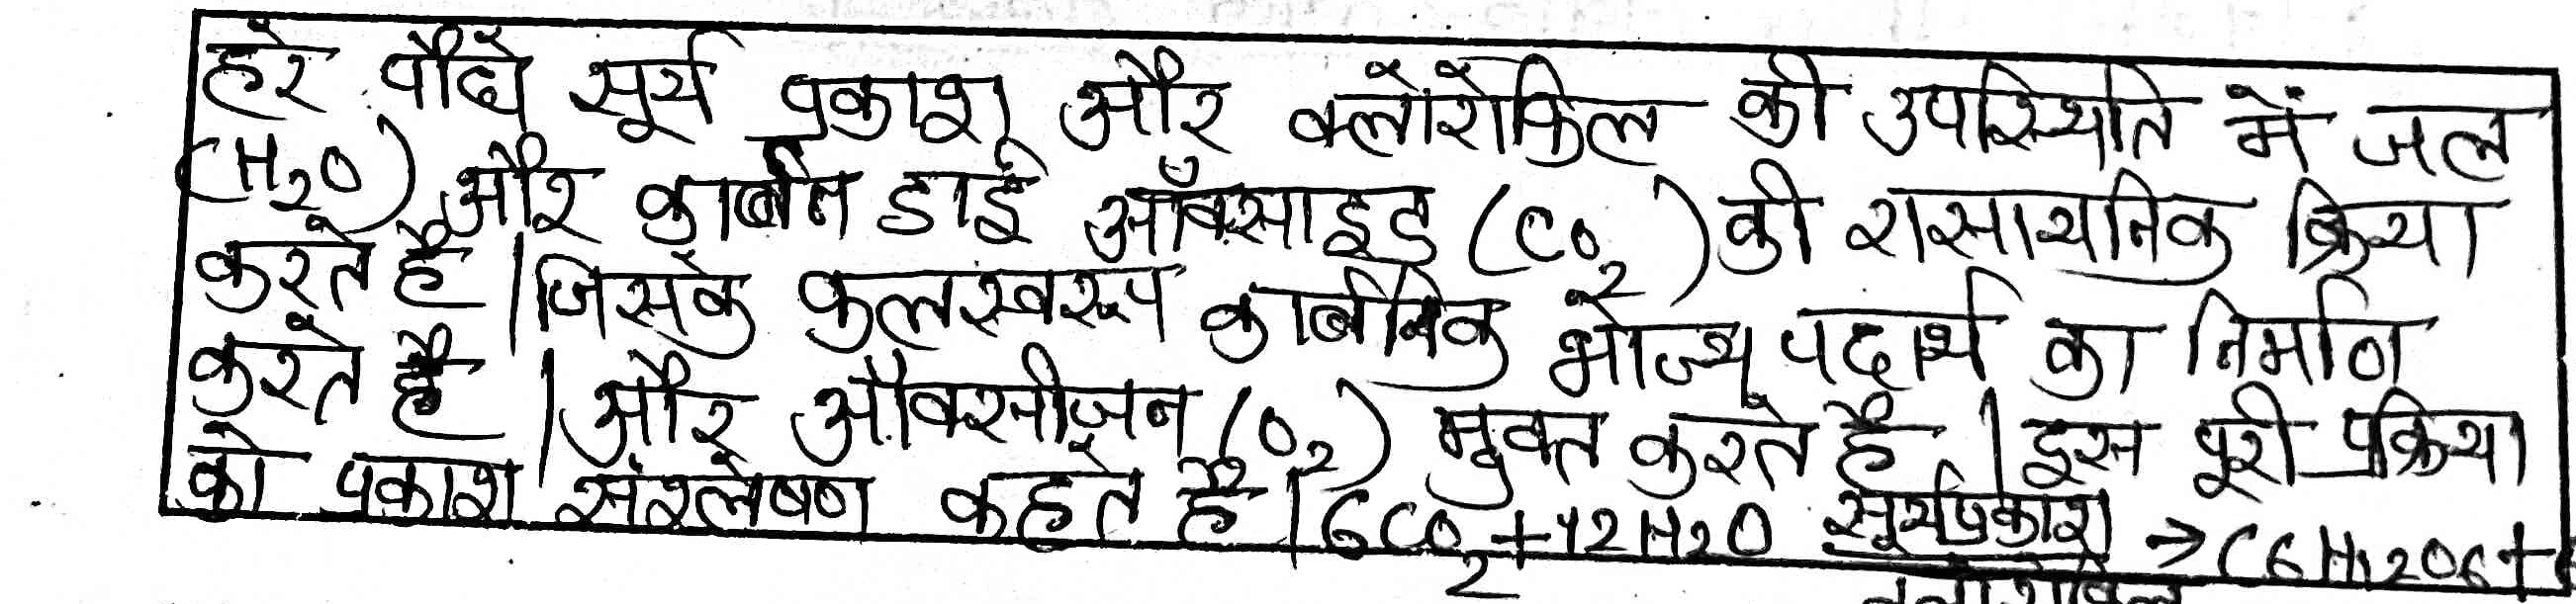 हरे पौधे सूर्य प्रकाश और क्लोरोफिल की उपस्थिति में जल
(H₂O) और कार्बन डाई ऑक्साइड (CO₂) की रासायनिक क्रिया
करते है। जिसके फलस्वरूप कार्बनिक भोज्य पदार्थ का निर्माण
करते है। और औक्सीजन (O₂) मुक्त करते है। इस पूरी प्रक्रिया
को प्रकाश संश्लेषण कहते है। 6CO₂+12H₂O सूर्यप्रकाश → C6H12O6+